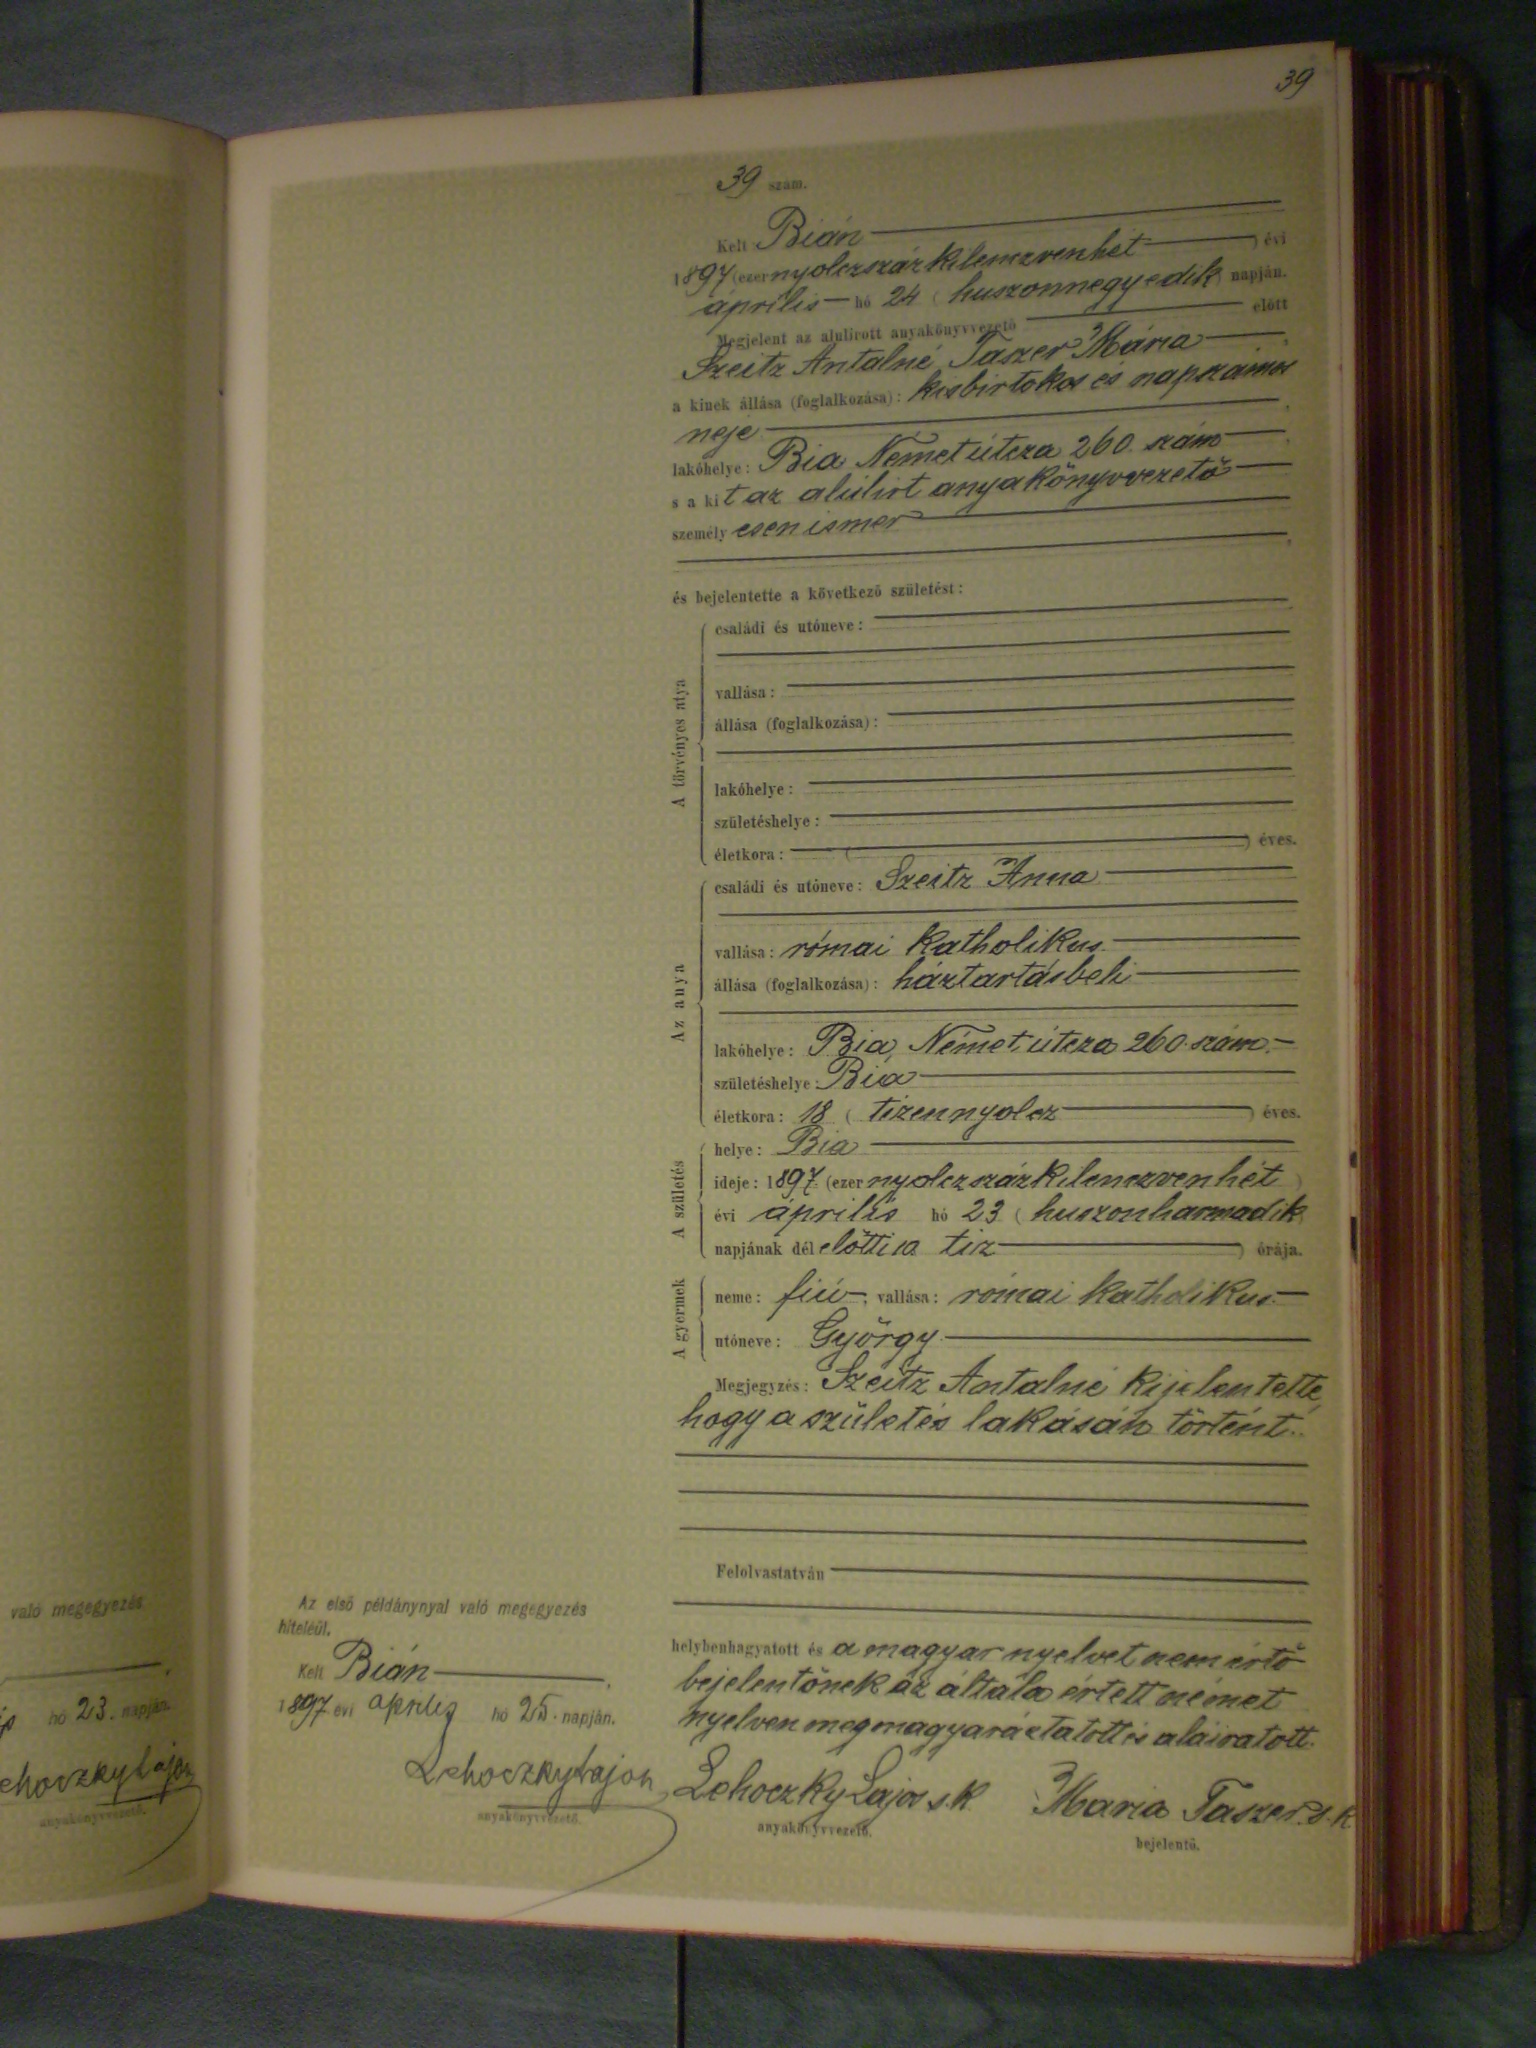 39
39 szám.
Kelt Bián
1897 (ezer nyolczszázkilenczvenhét) évi
április hó 24 (huszonnegyedik) napján.
Megjelent az alulirott anyakönyvvezető előtt
Szeitz Antalné Taszer Mária
a kinek állása (foglalkozása): kisbirtokos és napszámos
neje
lakóhelye: Bia Német útcza 260. szám
s a kit az alúlirt anyakönyvvezető
személyesen ismer
és bejelentette a következő születést:
A törvényes atya
családi és utóneve:
vallása:
állása (foglalkozása):
lakóhelye:
születéshelye:
életkora: ( ) éves.
Az anya
családi és utóneve: Szeitz Anna
vallása: római katholikus
állása (foglalkozása): háztartásbeli
lakóhelye: Bia, Német útcza 260. szám.
születéshelye: Bia
életkora: 18 (tizennyolcz) éves.
A születés
helye: Bia
ideje: 1897 (ezer nyolczszázkilenczvenhét)
évi április hó 23 (huszonharmadik)
napjának délelőtti 10 tiz ) órája.
A gyermek
neme: fiú; vallása: római katholikus
utóneve: György
Megjegyzés: Szeitz Antalné kijelentette,
hogy a születés lakásán történt.
Felolvastatván
helybenhagyatott és a magyar nyelvet nem értő
bejelentőnek az általa értett német
nyelven megmagyaráztatott és aláiratott.
Lehoczky Lajos s.k. Maria Taszer s.k.
anyakönyvvezető. bejelentő.
Az első példánynyal való megegyezés
hiteléül.
Kelt Bián
1897 évi április hó 25. napján.
Lehoczky Lajos
anyakönyvvezető.
való megegyezés
hó 23. napján.
ehoczky Lajos
anyakönyvvezető.